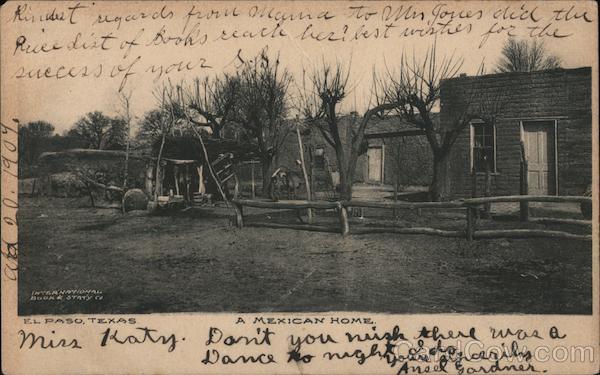 Kindest regards from Mama to Mrs Jones did the
Price list of Books reach her? best wishes for the
success of your
20. 1904.
INTERNATIONAL
BOOK & STAT'Y CO
EL PASO, TEXAS
A MEXICAN HOME.
Miss Katy. Don't you wish there was a
Dance to night
Yours Sincerely
Ansel Gardner.
CardCow.com